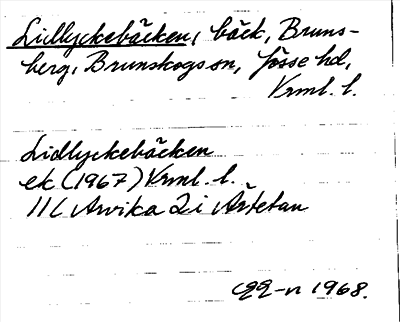 Lidlyckebäcken, bäck, Bruns-
berg, Brunskogs sn, Jösse hd,
Vrml. l.
Lidlyckebäcken
ek (1967) Vrml. l.
11C Arvika 2i Årtetan
1968.